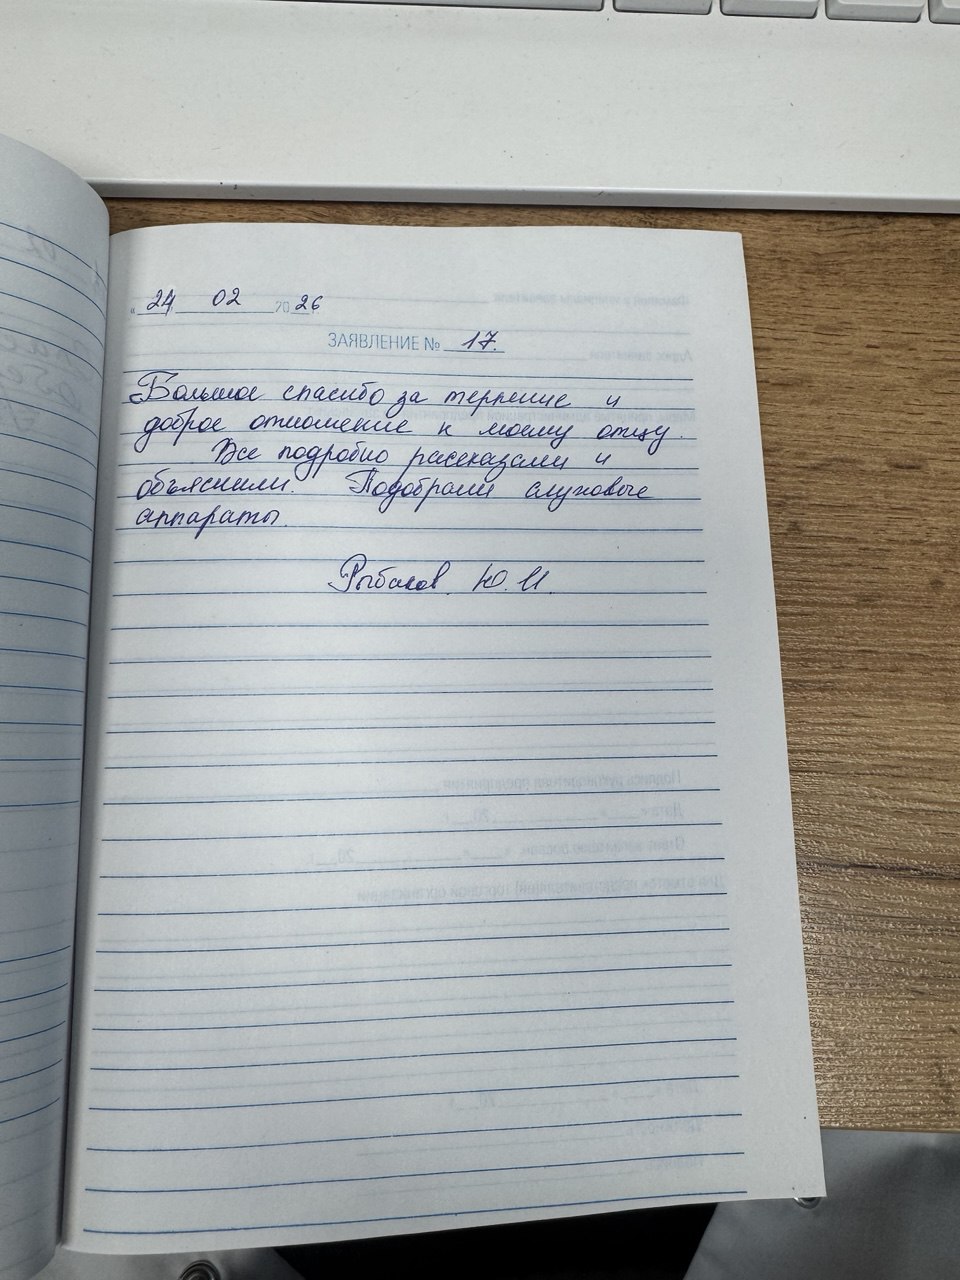 « 24 02 20 26
ЗАЯВЛЕНИЕ № 17.
Большое спасибо за терпение и
доброе отношение к моему отцу.
Все подробно рассказали и
объяснили. Подобрали слуховые
аппараты.
Рыбаков Ю.И.